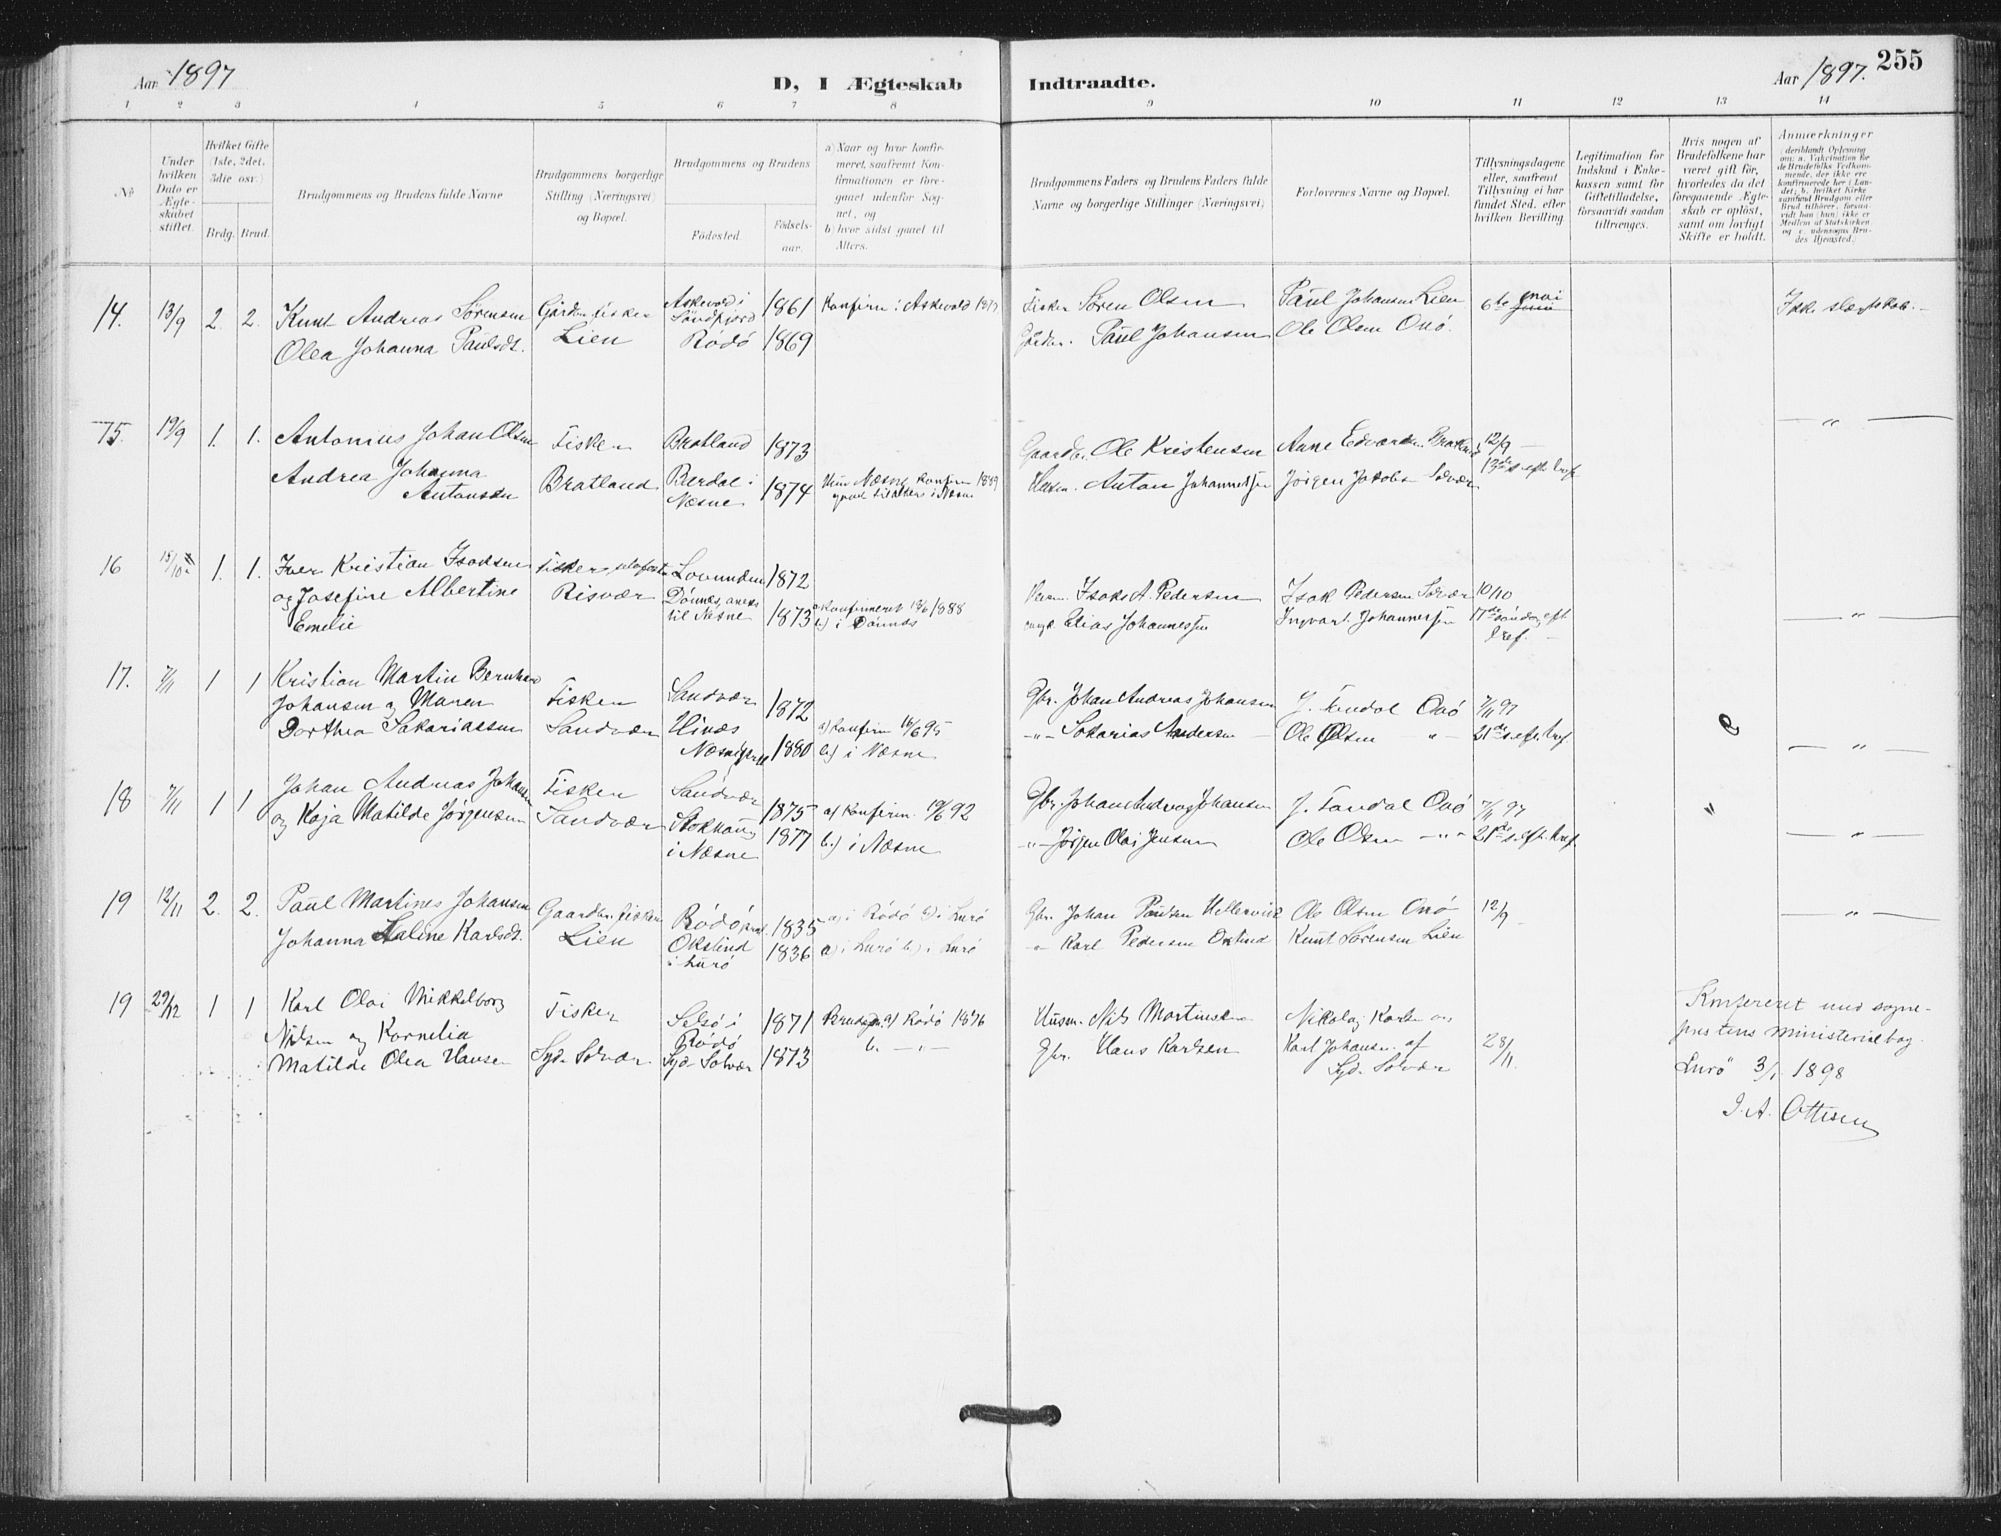 Aar 1897
D, I Ægteskab Indtraadte.
Aar 1897. 255
1 2 3 4 5 6 7 8 9 10 11 12 13 14
No
Under hvilken Dato er Ægteskabet stiftet.
Hvilket Gifte (1ste, 2det, 3die osv.)
Brdg. Brud.
Brudgommens og Brudens fulde Navne
Brudgommens borgerlige Stilling (Næringsvei) og Bopæl.
Brudgommens og Brudens
Fødested. Fødselsaar.
a) Naar og hvor konfirmeret, saafremt Konfirmationen er foregaaet udenfor Sognet, og
b) hvor sidst gaaet til Alters.
Brudgommens Faders og Brudens Faders fulde Navne og borgerlige Stillinger (Næringsvei)
Forlovernes Navne og Bopæl.
Tillysningsdagene eller, saafremt Tillysning ei har fundet Sted, efter hvilken Bevilling.
Legitimation for Indskud i Enkekassen samt for Giftetilladelse, forsaavidt saadan tiltrænges.
Hvis nogen af Brudefolkene har været gift før, hvorledes da det foregaaende Ægteskab er opløst, samt om lovligt Skifte er holdt.
Anmerkninger (deriblandt Oplysning om: a. Vakcination for de Brudefolks Vedkommende, der ikke ere konfirmerede her i Landet; b. hvilket Kirkesamfund Brudgom eller Brud tilhører, forsaavidt han (hun) ikke er Medlem af Statskirken og c. udensogns Brudes Hjemsted.)
14. 13/9 2. 2. Knut Andreas Sørensen
Olea Johanna Paulsdt.
Gårdbr. fisker
Lien
Askevold i Söndfjord 1861
Rödö 1869
Konfirm. i Askevold
Fisker Sören Olsen
Gårdbr. Paul Johansen
Paul Johansen Lien
Ole Olsen Onö.
6te mai
Ikke slægtskab.
15. 19/9 1. 1. Antonius Johan Olsen
Andrea Johanna
Antonsen
Fisker
Bratland
Bratland 1873
i Næsne 1874
Næsne konfirm 1889
Gaardbr. Ole Kristensen
Anton Johannessen
Arne Edvardsen Bratland
Jörgen Jakobs
12/9
13de s. eft. tref.
— " —
16 1. 1. Iver Kristian Isaksen
og Josefine Albertine
Emelie
Fisker
Risvær
Lovunden 1872
Dönnes, anneks til Næsne 1873
a) Konfirmeret 1888
b) i Dönnes
Isak A. Pedersen
Elias Johannessen
Isak Pedersen Solvær
Ingvart Johannessen
10/10
17de söndag eft.
tref.
— " —
17. 7/11 1 1 Kristian Martin Bernhard
Johansen og Maren
Dorthea Sakariassen
Fisker
Sandvær
Sandvær 1872
Næsne 1880
a) Konfirm 95
b.) i Næsne
Gbr. Johan Andreas Johansen
-"- Sakarias Andersen
J. Tendal Onö
Ole Olsen - " -
7/11 97
21de s. eft. tref.
— " —
18 7/11 1 1 Johan Andreas Johansen
og Kaja Matilde Jörgensen
Fisker
Sandvær
Sandvær 1875
i Næsne 1877
a) Konfirm. 19/6 92
b.) i Næsne
Gbr. Johan Andreas Johansen
-"- Jörgen Olai Jensen
J. Tendal Onö
Ole Olsen - " -
7/11 97
21de s. eft. tref.
"
— " —
19 12/11 2. 2. Paul Martines Johansen
Johanna Haline Karlsdt.
Gaardbr. fisker
Lien
Rödö 1835
Okstind i Lurö 1836
a) i Rödö b) i Lurö
a) i Lurö b) i Lurö
Gbr. Johan Paulsen
" Karl Pedersen Okstind
Ole Olsen Onö
Knut Sørensen Lien
12/9
— " —
19 29/12 1 1 Karl Olai Mikkelborg
Nilsen og Kornelia
Matilde Olea Hansen
Fisker
Syd-Solvær
Selsö i Rödö 1871
Syd-Solvær 1873
a) Rödö 1876
b. - " -
Husm. Nils Martinsen
Gbr. Hans Karlsen
Nikolaj Karlsen og
Karl Johansen af
Syd-Solvær
28/11.
Konfereret med sogneprestens ministerialbog.
Lurö 3/1 1898
J. A. Ottesen